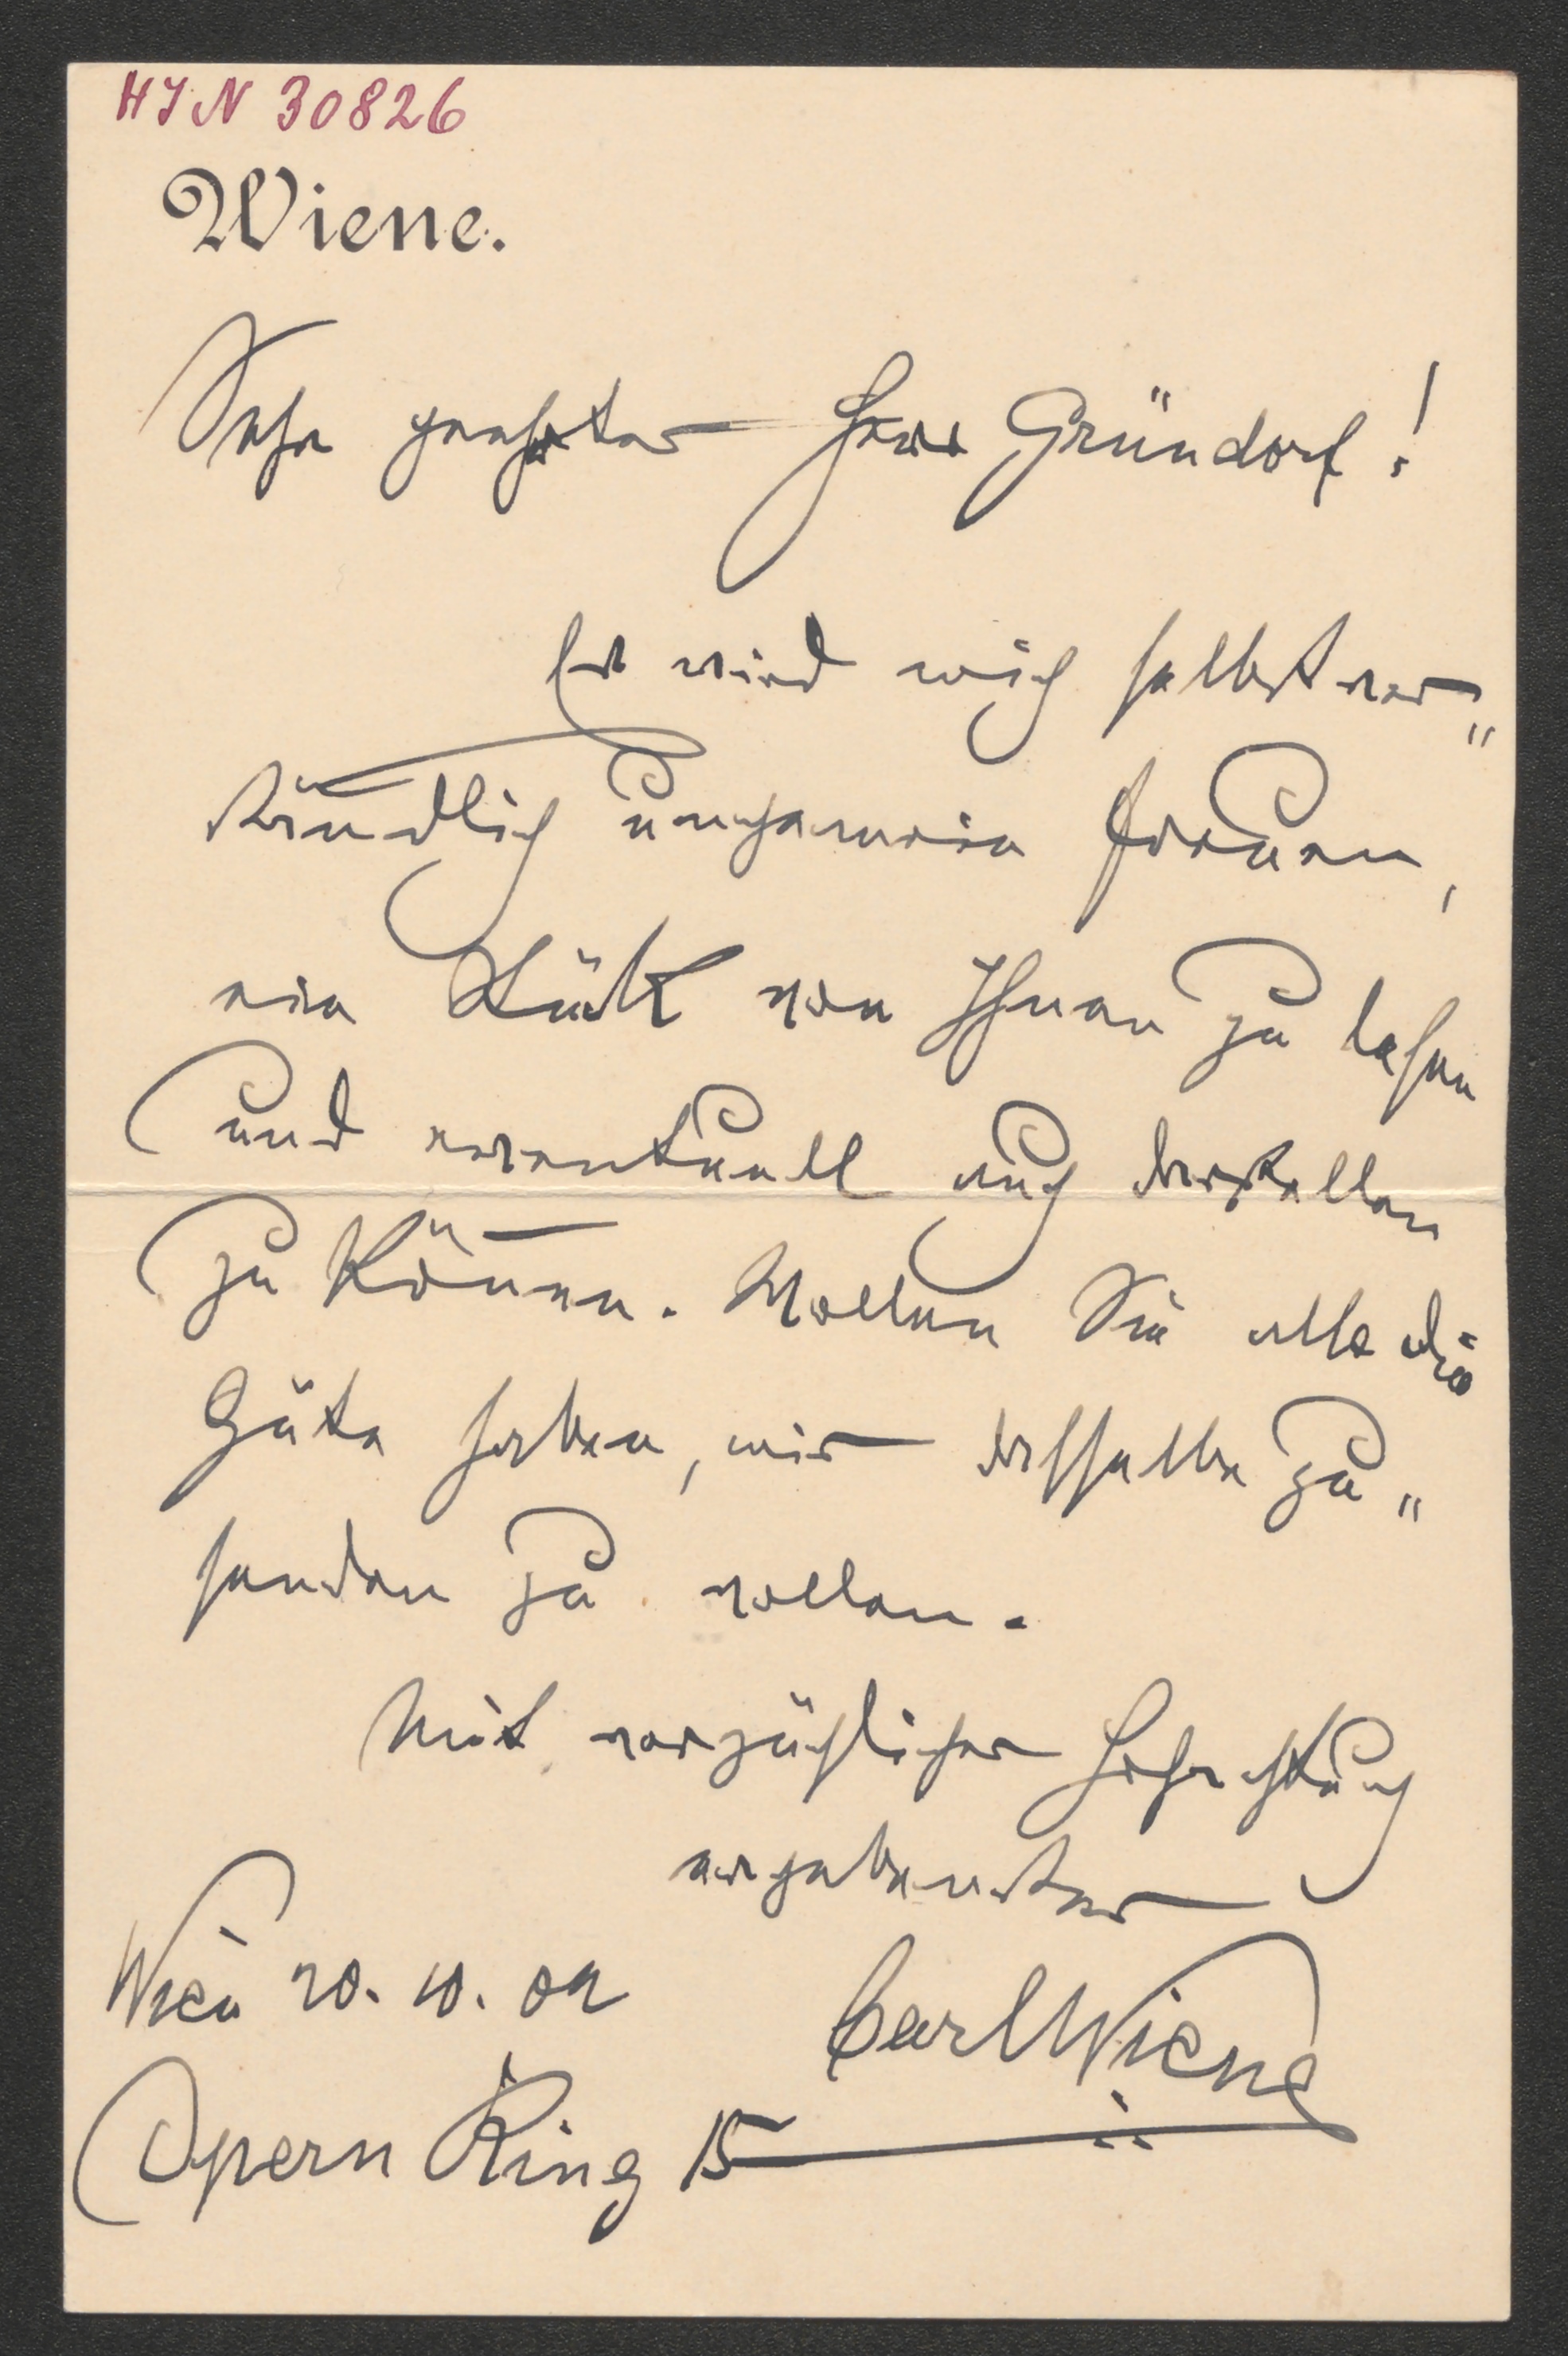 HIN 30826
Wiene.
Sehr geehrter Herr Gründorf!
Es wird mich selbstver„
ständlich ungemein freuen,
ein Stück von Ihnen zu lesen
und eventuell auch darstellen
zu können. Wollen Sie also die
Güte haben, mir dasselbe zu„
senden zu wollen.
Mit vorzüglicher Hochachtung
ergebenster
Wien 20. 10. 02
Carl Wiene
Opern Ring 15